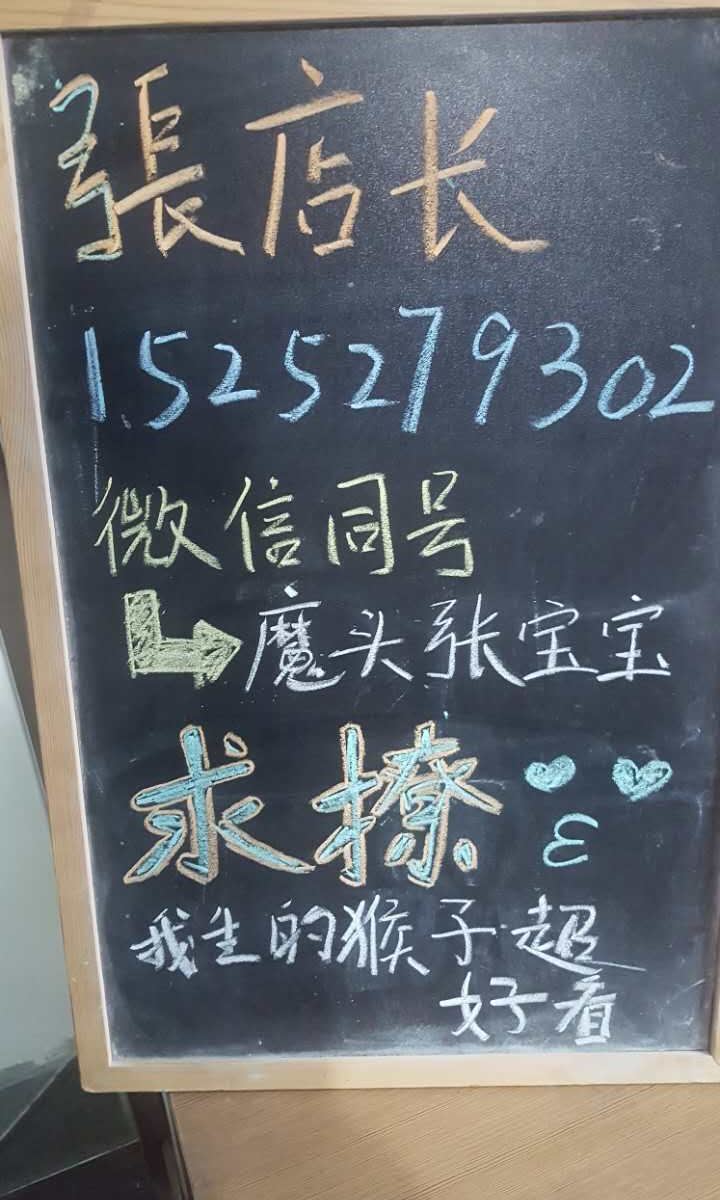 張店长
1525279302
微信同号
魔头张宝宝
求撩
我生的猴子超
好看